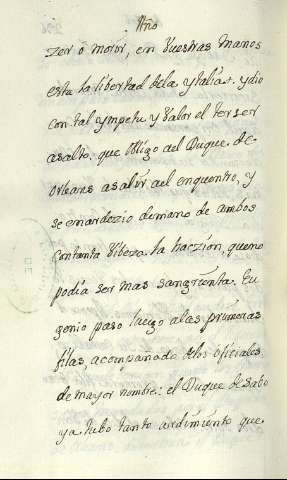 Año
zer ò morir, en vuestras manos
esta la libertad dela ytalia. y dio
con tal ympetu y valor el terser
asalto, que obligo ael Duque. de
Orleans asalir ael enquentro, y
se enardezio demano de ambos
contanta viveza la haczion, queno
podia ser mas sangrienta. Eu
genio paso luego alas primeras
filas, acompañado delos oficiales
de mayor nombre: el Duque de sabo
ya tubo tanto ardimiento que